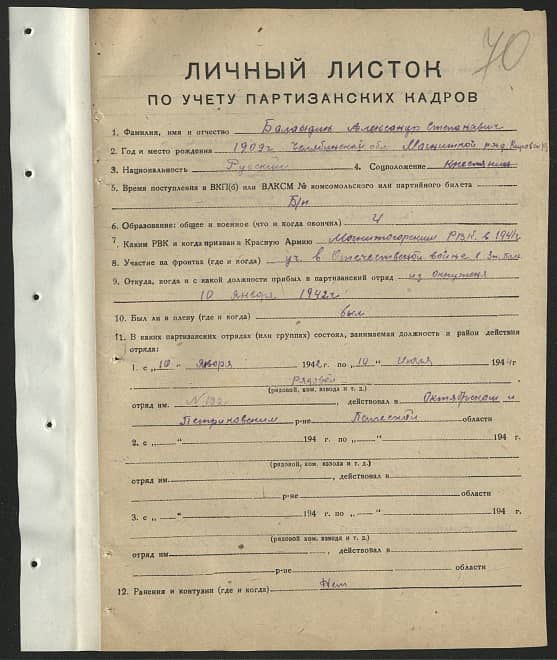 70
ЛИЧНЫЙ ЛИСТОК
ПО УЧЕТУ ПАРТИЗАНСКИХ КАДРОВ
1. Фамилия, имя и отчество Александр Степанович
2. Год и место рождения 1909г Челябинской обл. Магнитной
3. Национальность Русский 4. Соцположение крестьянин
5. Время поступления в ВКП(б) или ВЛКСМ № комсомольского или партийного билета
Б/п
6. Образование: общее и военное (что и когда окончил) 4
7. Каким РВК и когда призван в Красную Армию Магнитогорским РВК в 1941г
8. Участие на фронтах (где и когда) уч. в Отечественой войне с
9. Откуда, когда и с какой должности прибыл в партизанский отряд из окружения
10 января 1942г
10. Был ли в плену (где и когда) был
11. В каких партизанских отрядах (или группах) состоял, занимаемая должность и район действия
отряда:
1. с „10“ января 1942 г. по „10“ Июля 1944г
Рядовой
(рядовой, ком. взвода и т. д.)
отряд им. действовал в Октябрском и
Петриковским р-не Полесской области
2. с „ “ 194 г. по „ “ 194 г.
(рядовой, ком. взвода и т. д.)
отряд им. , действовал в
р-не области
3. с „ “ 194 г. по „ “ 194 г.
(рядовой, ком. взвода и т. д.)
отряд им. действовал в
р-не области
12. Ранения и контузии (где и когда) Нет